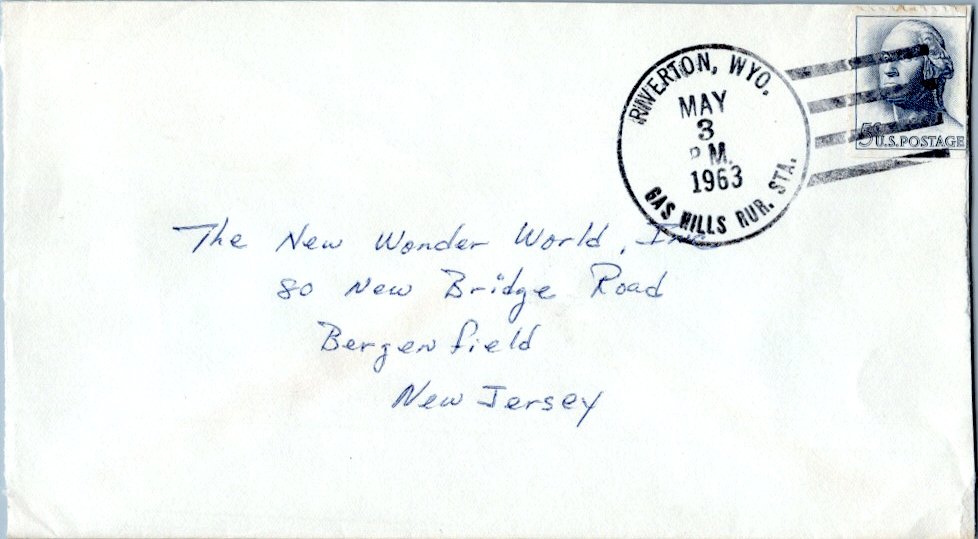 RIVERTON, WYO.
MAY
3
P M.
1963
GAS HILLS RUR. STA.
5¢
U.S. POSTAGE
The New Wonder World, Inc
80 New Bridge Road
Bergenfield
New Jersey